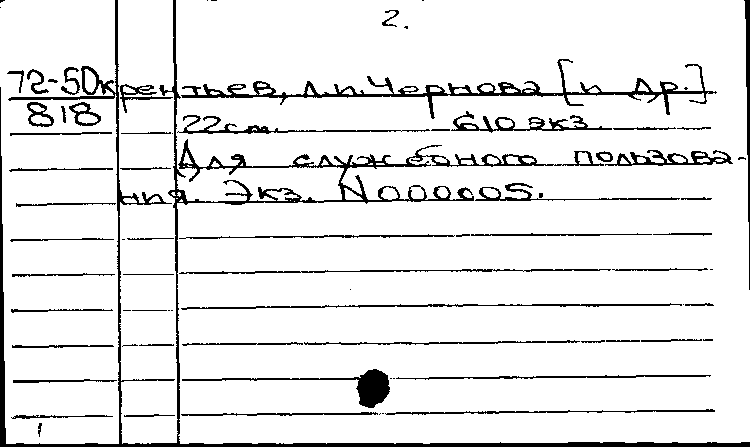 2.
72-50крентьев, Л.П. Чернова [и др.]
818
22см. 610 экз.
Для служебного пользова-
ния. Экз. N000005.
1